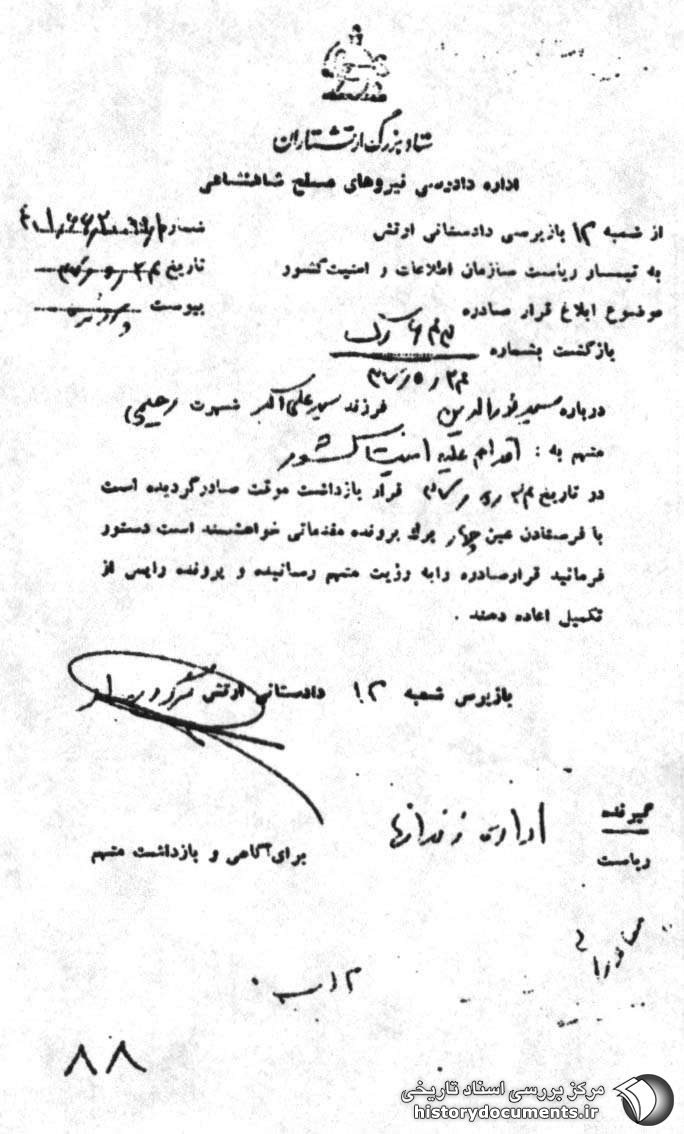 ستاد بزرگ ارتشتاران
اداره دادرسی نیروهای مسلح شاهنشاهی
از شعبه ۱۲ بازپرسی دادستانی ارتش
شماره
به تیمسار ریاست سازمان اطلاعات و امنیت کشور
تاریخ
موضوع ابلاغ قرار صادره
پیوست
بازگشت بشماره
درباره سید نورالدین فرزند سید علی اکبر شهرت رحیمی
متهم به : اقدام علیه امنیت کشور
در تاریخ قرار بازداشت موقت صادر گردیده است
با فرستادن عین چهار برگ پرونده مقدماتی خواهشمند است دستور
فرمائید قرار صادره را به رؤیت متهم رسانیده و پرونده را پس از
تکمیل اعاده دهند .
بازپرس شعبه ۱۲ دادستانی ارتش
گیرنده
ریاست اداره زندانها برای آگاهی و بازداشت متهم
۸۸
مرکز بررسی اسناد تاریخی
historydocuments.ir